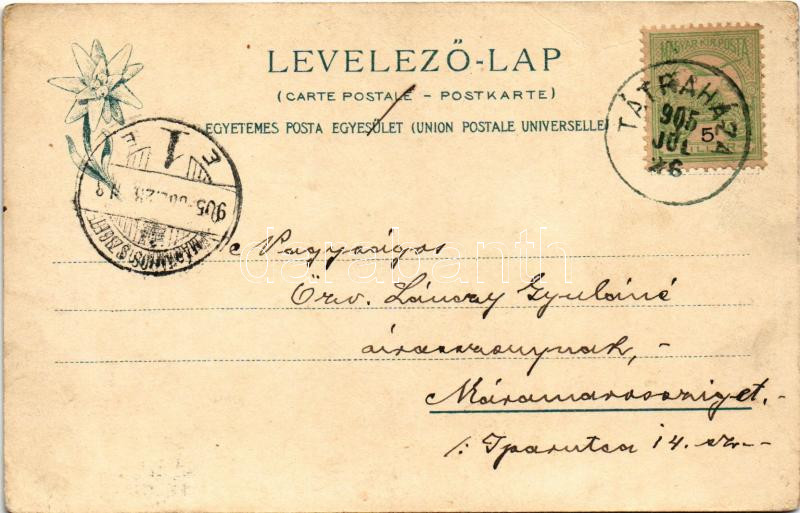 LEVELEZŐ-LAP
(CARTE POSTALE – POSTKARTE)
EGYETEMES POSTA EGYESÜLET (UNION POSTALE UNIVERSELLE)
MAGYAR KIR. POSTA
5
TÁTRAHÁZA
905
JUL
26
1
905
MÁRAMAROSSZIGET
Nagyságos
Özv. Lánczy Gyuláné
úrasszonynak, -
Máramarossziget. -
/: Iparutca 14. sz. -
darabanth